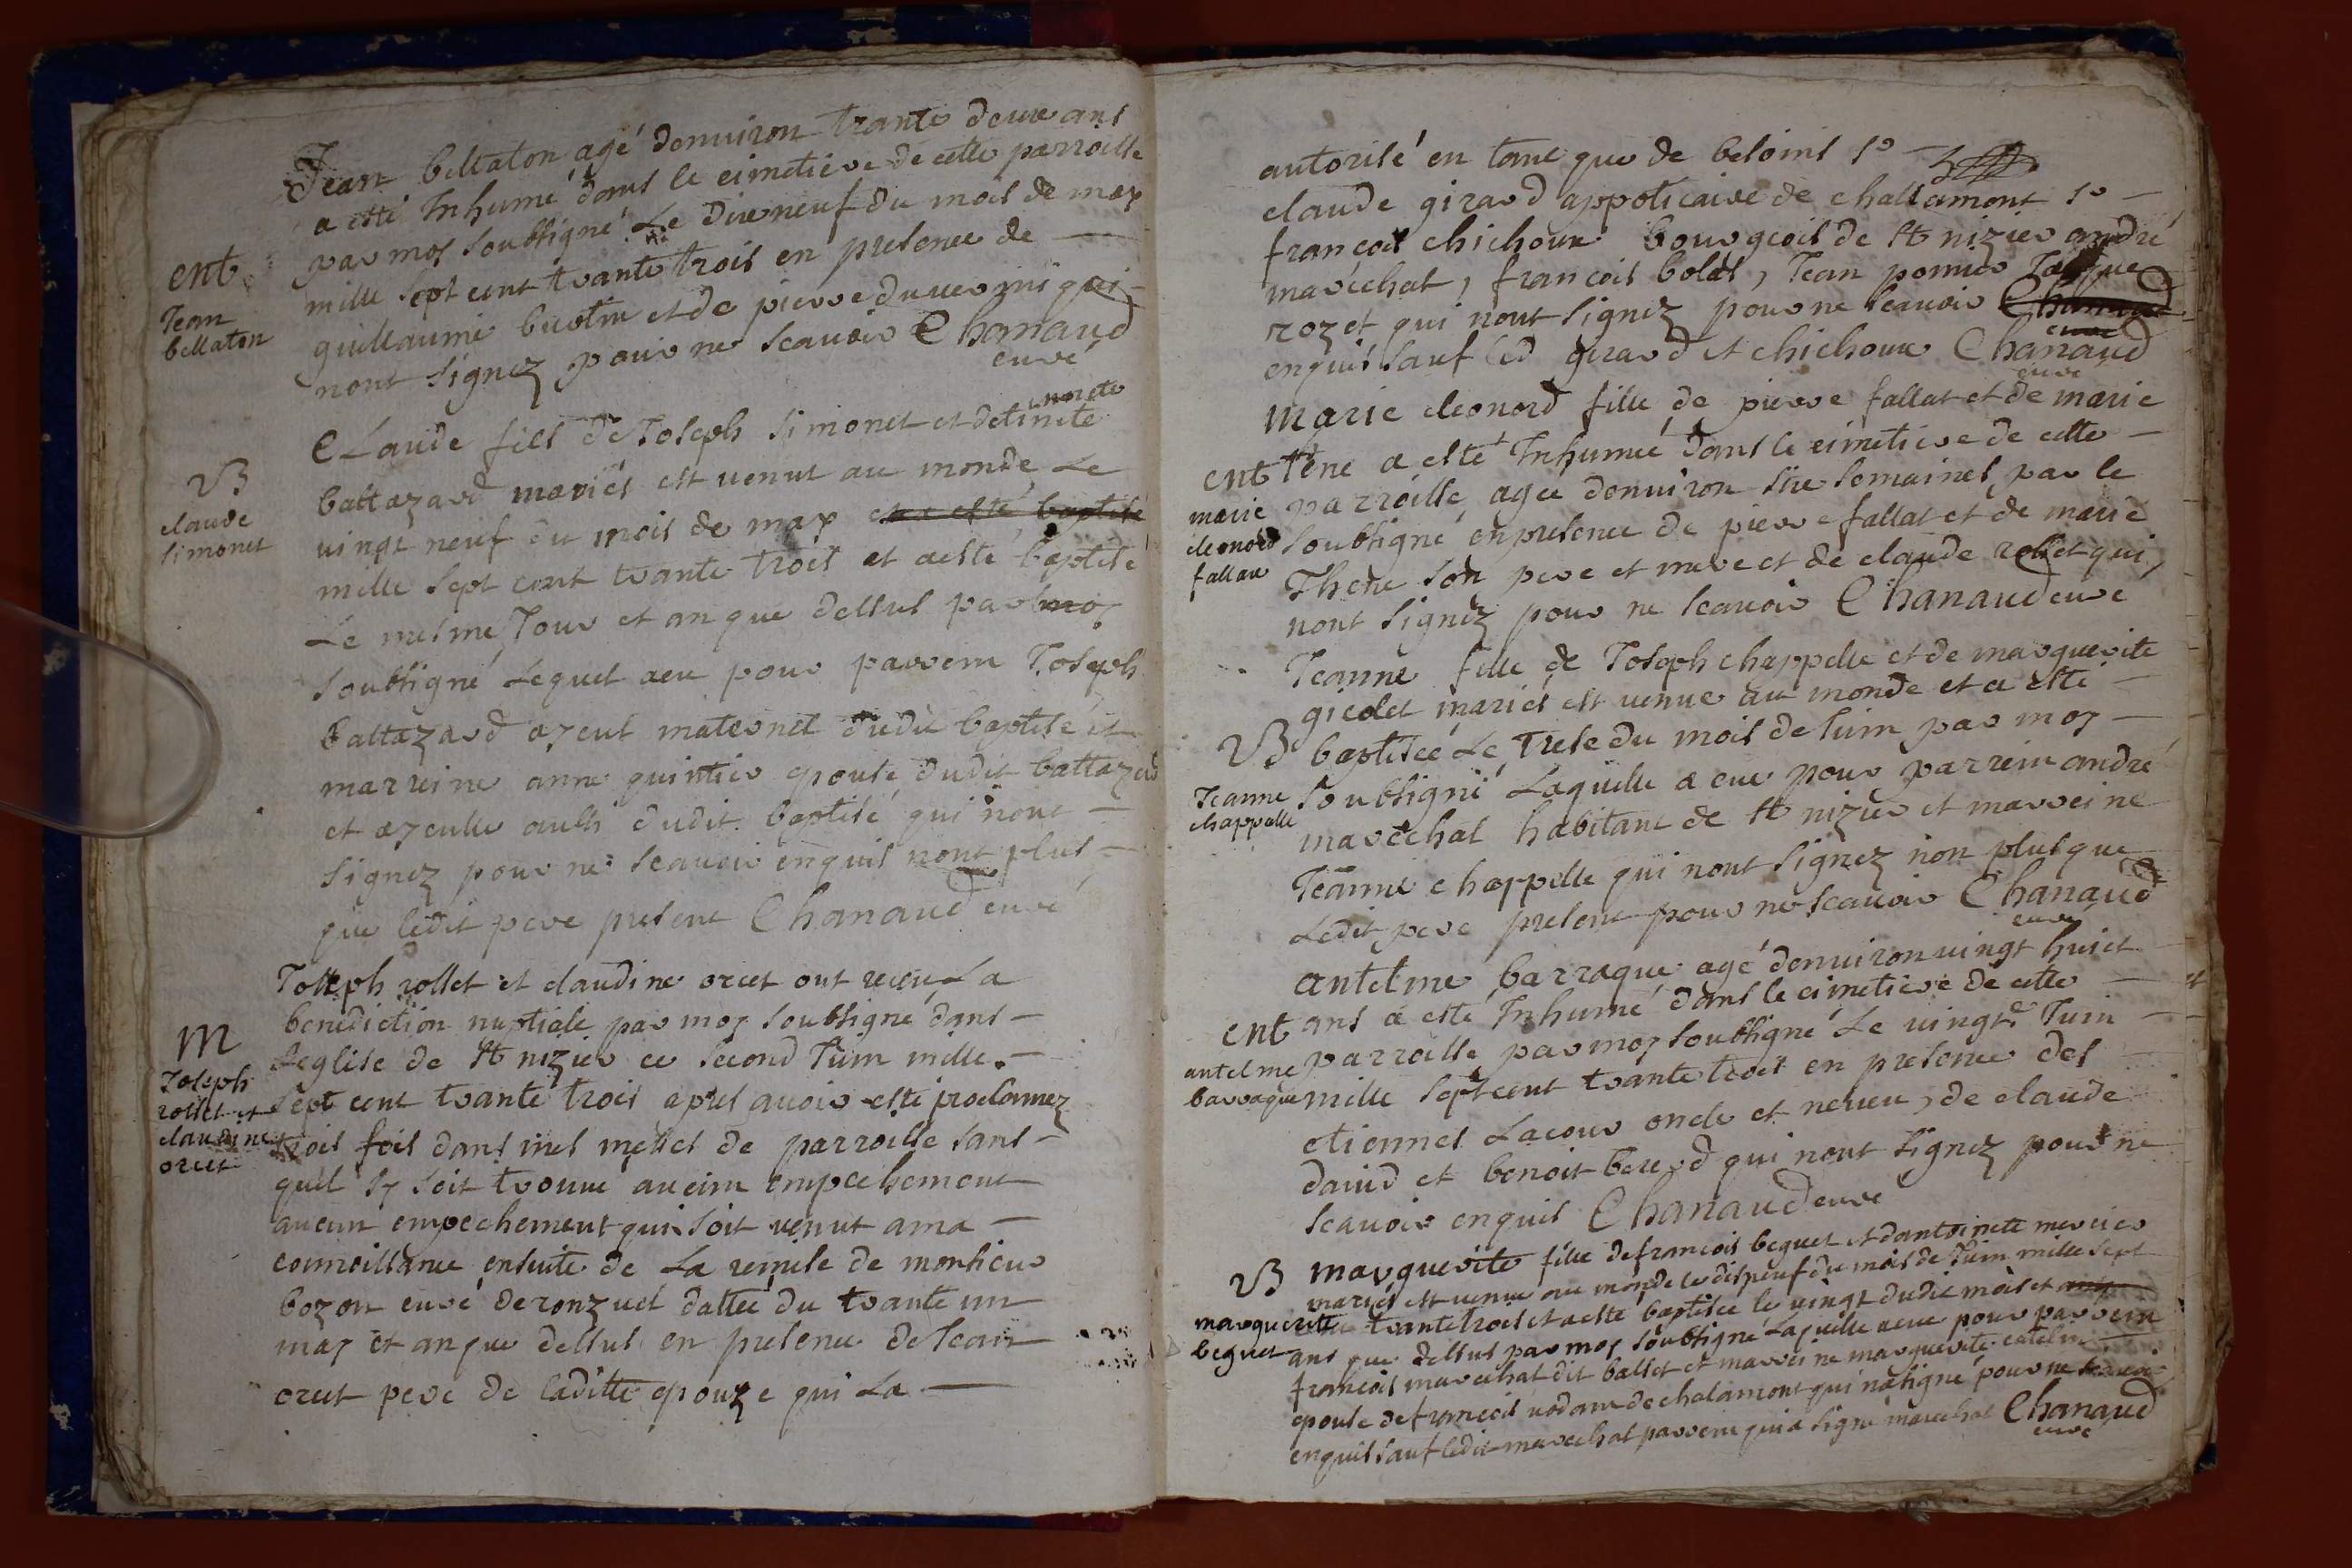 Jean bellaton agé denuiron trante deux ans
a esté Inhumé dans le cimetiere de cette parroisse
par moy soubsigné Le dixneuf du mois de may
mille sept cent trante trois en presence de
guillaume buotin et de pierre duuernei qui
nont signez pour ne scauoir Chanaud
curé
ent
Jean
bellaton
Claude fils de Joseph simonet et detinete
battazard mariés est venut au monde Le
vingt neuf du mois de may et a esté baptisé
mille sept cent trante trois et aesté baptisé
Le mesme Jour et an que dessus par moy
soubsigné Lequel aeu pour parrein Joseph
battazard ayeul maternel dudit baptisé et
marreine anne quintier epouse dudit battazard
et ayeulle aussi dudit baptisé qui nont
signez pour ne scauoir enquis nont plus
que ledit pere present Chanaud curé
B
claude
simonet
Joseph rollet et claudine orcet ont receu La
benediction nuptiale par moy soubsigné dans
Leglise de st nizier ce second Juin mille
sept cent trante trois apres auoir esté proclamez
trois fois dans mes messes de parroisse sans
quil sy soit trouué aucun empechement
aucun empechement qui soit venut a ma
connoissance ensuite de La remise de monsieur
bozon curé deronzuel dattée du trante un
may et an que dessus en presence de Jean
orcet pere de laditte epouze qui La
M
Joseph
rollet et
claudine
orcet
autorisé en tant que de besoins
claude girard appoticaire de challamont
francois chichoux bourgeois de st nizier andré
marechal, francois bolas, Jean pomier
rozet qui nont signez pour ne scauoir Chanaud
enquis sauf led girard et chichoux Chanaud
curé
marie eleonord fille de pierre fallat et de marie
tene a esté Inhumée dans le cimetiere de cette
parroisse, agee denuiron six semaines, par le
soubsigné en presence de pierre fallat et de marie
Thene son pere et mere et de claude rollet qui
nont signez pour ne scauoir Chanaud curé
ent
marie
eleonord
fallat
Jeanne fille de Joseph chappelle et de marguerite
gicolet mariés est venue au monde et a esté
baptisée Le trese du mois de Juin par moy
soubsigné Laquelle a eue pour parrein andré
marechal habitant de st nizier et marreine
Jeanne chappelle qui nont signez non plus que
Ledit pere present pour ne scauoir Chanaud
curé
B
Jeanne
chappelle
antelme barraque agé denuiron vingt huict
ans a esté Inhumé dans le cimetiere de cette
parroisse par moy soubsigné Le vingt Juin
mille sept cent trante trois en presence des
etiennes Lacour oncle et neueu, de claude
dauid et benoit berord qui nont signez pour ne
scauoir enquis Chanaud curé
ent
antelme
barraque
marguerite fille de francois beguet et dantoinete mercier
mariés est venue au monde le disneuf du mois de Juin mille sept
cent trante trois et aesté baptisée le vingt dudit mois et
ans que dessus par moy soubsigné Laquelle aeue pour parrein
francois marechal dit ballet et marreine marguerite catelin
epouse de francois nodant de chalamont qui na signé pour ne scauoir
enquis sauf ledit marechal parrein qui a signé marechal Chanaud
curé
B
marguerite
beguet